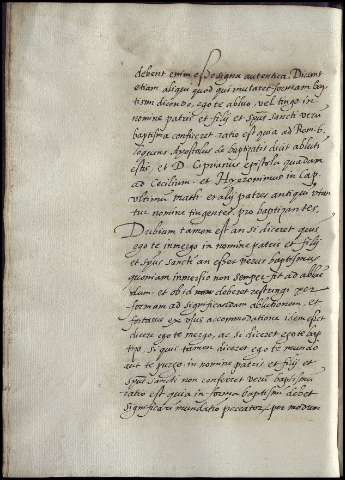 debent enim esse signa autentica. Dicunt
etiam aliqui quod qui mutaret formam bap
tismi dicendo, ego te abluo, vel tingo in
nomine patris et filij et spus sancti verū
baptisma conficeret ratio est quia ad Rom. 6.
sequens Apostolus de baptizatis dicit abluti
estis, et D. Ciprianus epistola quadam
ad Cecilium, et Hyeronimus in cap.
vltimum Math. et alij patres antiqui vtun
tur nomine tingentes, pro baptizantes.
Dubium tamen est an si diceret quis
ego te inmergo in nomine patris et filij
et spus sancti an esset verus baptismus
quoniam inmersio non semper fit ad abluē
dum, et ob id deberet restringi per
formam ad significandam ablutionem, et
fortassis ex usus accommodatione idem esset
dicere ego te mergo, ac si diceret ego te bap
tizo. si quis tamen diceret ego te mundo
aut te purgo in nomine patris et filij et
spus sancti non conferret verū baptismū
ratio est quia in forma baptismi debet
significari mundatio peccator, per modum